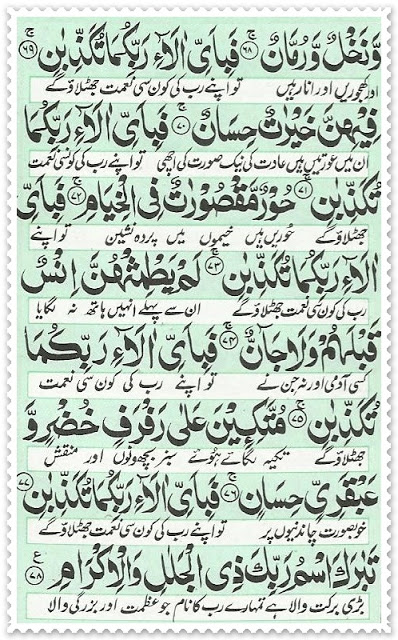 وَّ نَخْلٌ وَّ رُمَّانٌ ﴿۶۸﴾ فَبِاَىِّ اٰلَآءِ رَبِّكُمَا تُكَذِّبٰنِ ﴿۶۹﴾
اور کھجوریں اور انار ہیں تو اپنے رب کی کون سی نعمت جھٹلاؤ گے
فِيْهِنَّ خَيْرٰتٌ حِسَانٌ ﴿۷۰﴾ فَبِاَىِّ اٰلَآءِ رَبِّكُمَا
ان میں عورتیں ہیں عادت کی نیک صورت کی اچھی تو اپنے رب کی کونسی نعمت
تُكَذِّبٰنِ ﴿۷۱﴾ حُوْرٌ مَّقْصُوْرٰتٌ فِى الْخِيَامِ ﴿۷۲﴾ فَبِاَىِّ
جھٹلاؤ گے حوریں ہیں خیموں میں پردہ نشین تو اپنے
اٰلَآءِ رَبِّكُمَا تُكَذِّبٰنِ ﴿۷۳﴾ لَمْ يَطْمِثْهُنَّ اِنْسٌ
رب کی کون سی نعمت جھٹلاؤ گے ان سے پہلے انہیں ہاتھ نہ لگایا
قَبْلَهُمْ وَلَا جَآنٌّ ﴿۷۴﴾ فَبِاَىِّ اٰلَآءِ رَبِّكُمَا
کسی آدمی اور نہ جن نے تو اپنے رب کی کون سی نعمت
تُكَذِّبٰنِ ﴿۷۵﴾ مُتَّكِـِٕيْنَ عَلٰى رَفْرَفٍ خُضْرٍ وَّ
جھٹلاؤ گے تکیہ لگائے ہوئے سبز بچھونوں اور منقش
عَبْقَرِىٍّ حِسَانٍ ﴿۷۶﴾ فَبِاَىِّ اٰلَآءِ رَبِّكُمَا تُكَذِّبٰنِ ﴿۷۷﴾
خوبصورت چاندنیوں پر تو اپنے رب کی کون سی نعمت جھٹلاؤ گے
تَبٰرَكَ اسْمُ رَبِّكَ ذِى الْجَلٰلِ وَالْاِكْرَامِ ﴿۷۸﴾ ع
بڑی برکت والا ہے تمہارے رب کا نام جو عظمت اور بزرگی والا